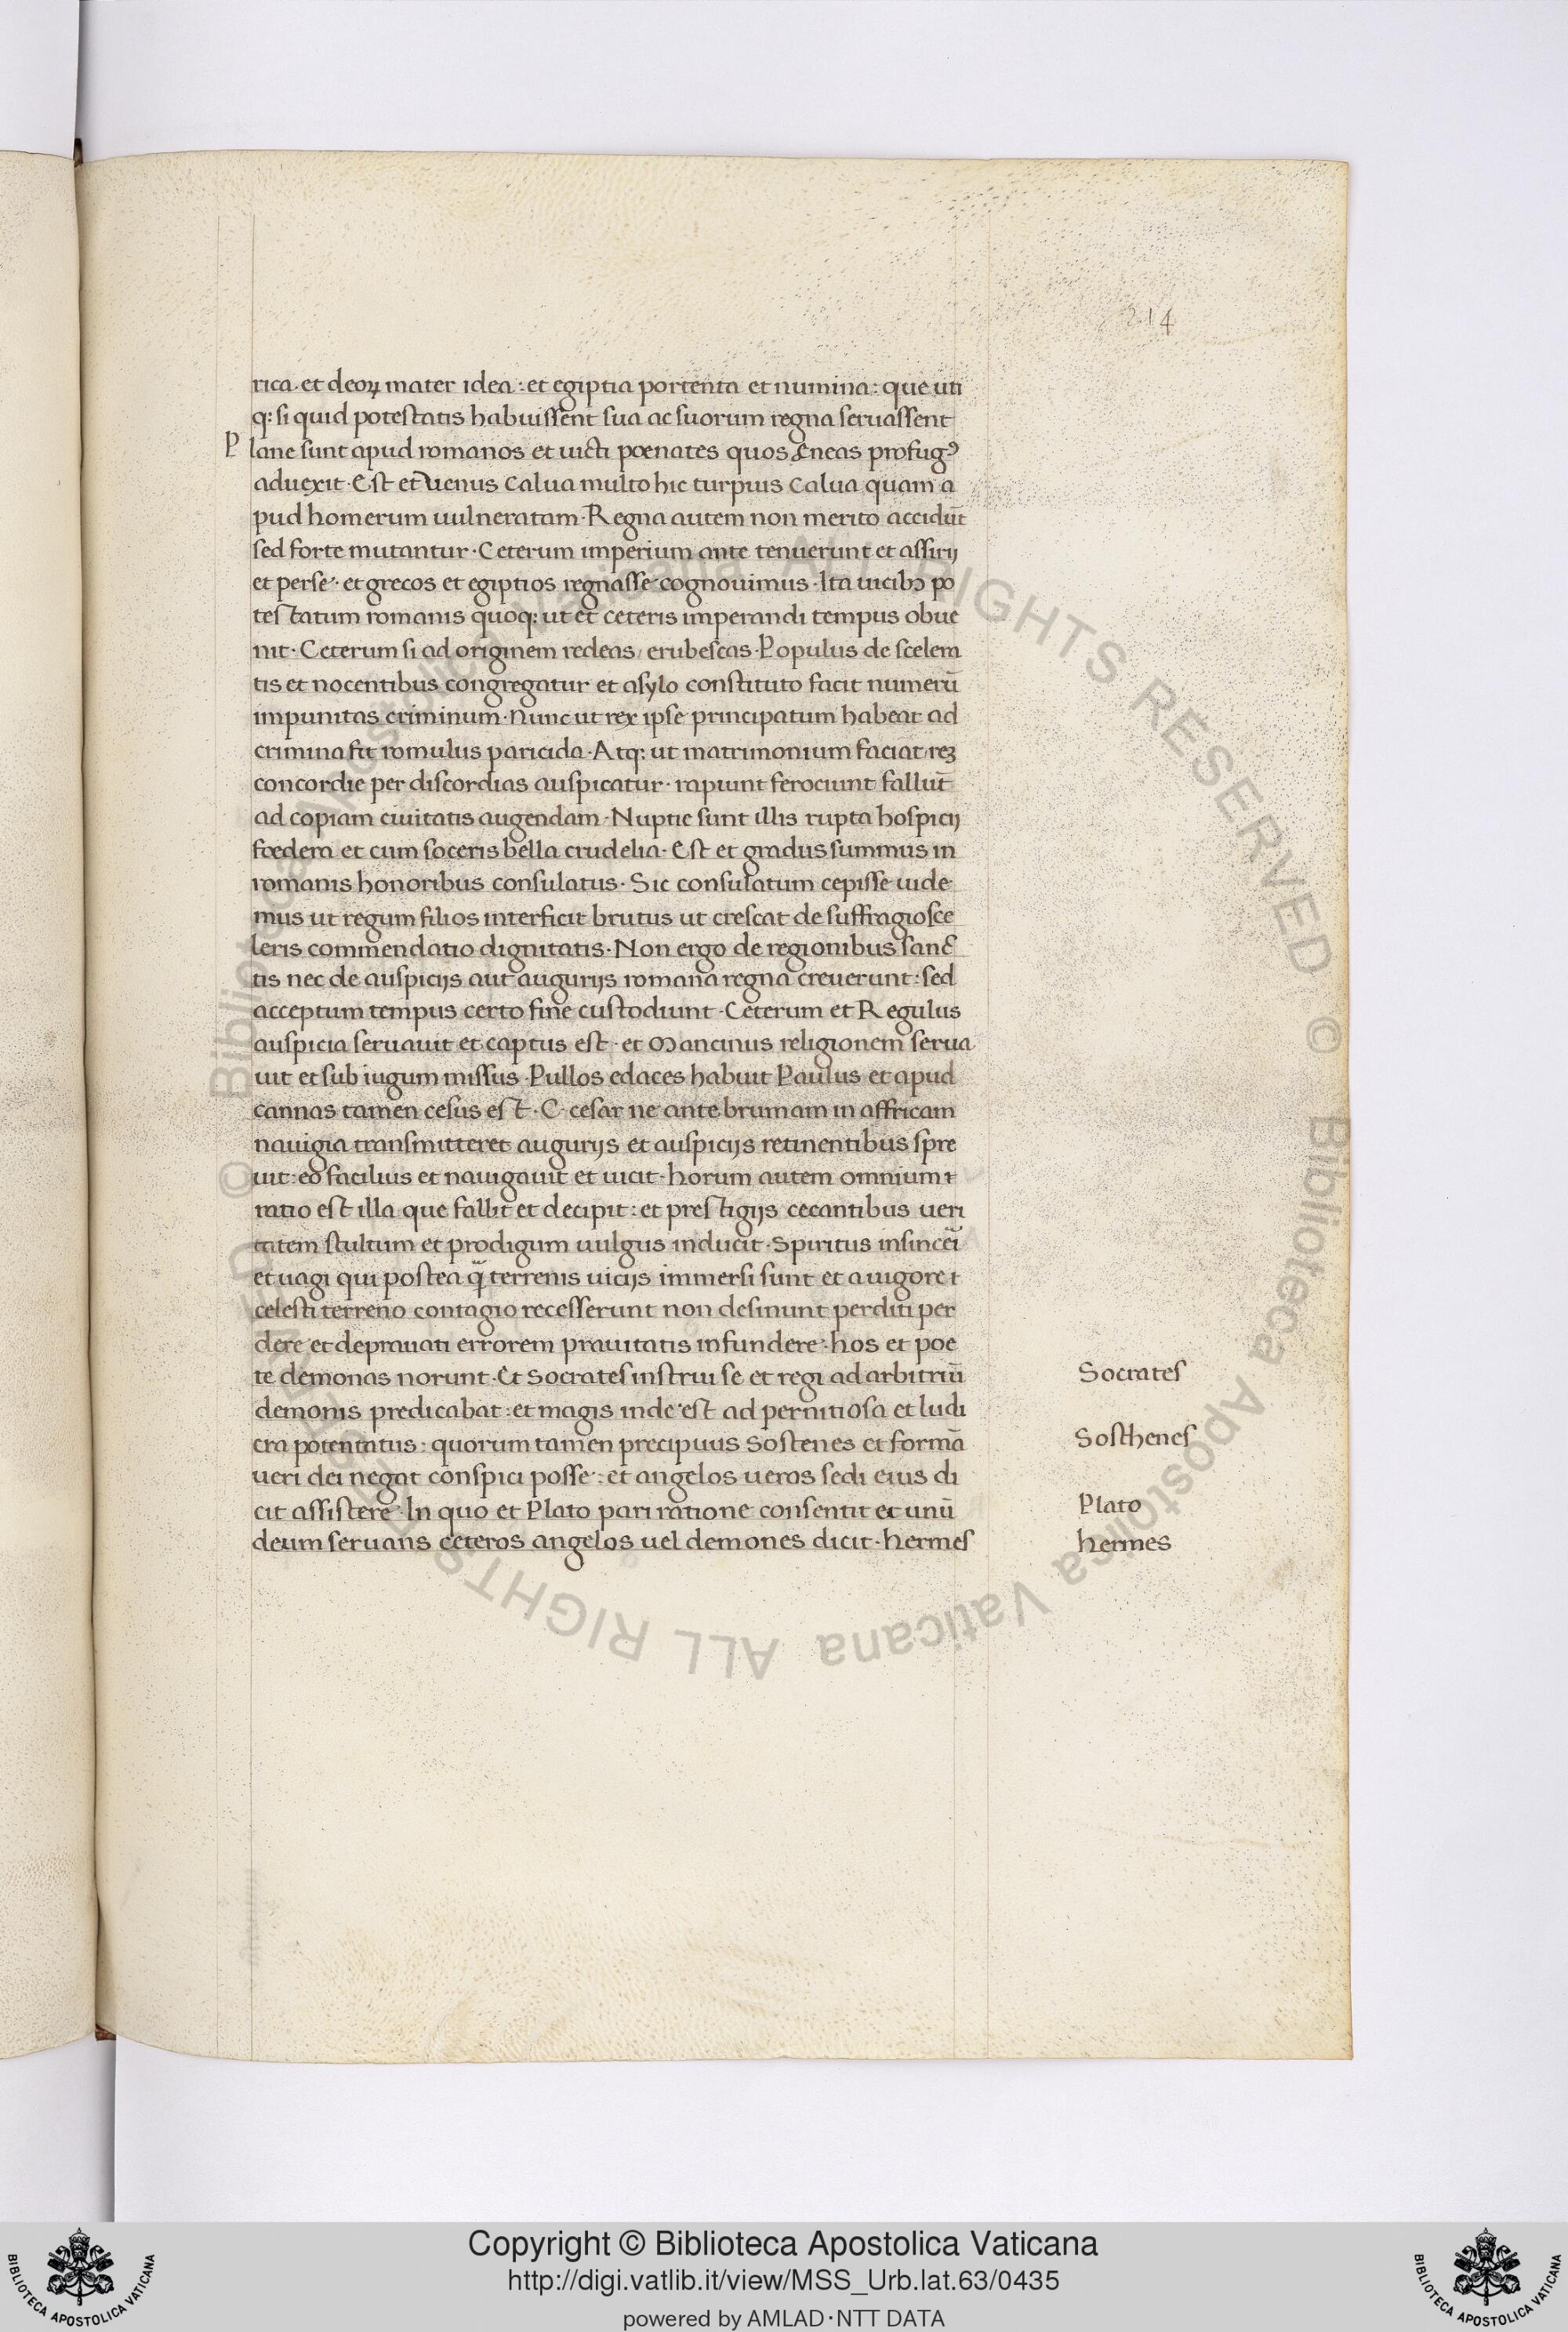 214
rica · et deoꝝ mater idea : et egiptia portenta et numina : que uti
q: si quid potestatis habuissent sua ac suorum regna seruassent
Plane sunt apud romanos et uicti poenates quos Eneas profugꝰ
aduexit · Est et Venus calua multo hic turpius calua quam a
pud homerum uulneratam · Regna autem non merito accidūt
sed forte mutantur · Ceterum imperium ante tenuerunt et assirij
et perse · et grecos et egiptios regnasse cognouimus · Ita uicibꝫ po
testatum romanis quoq: ut et ceteris imperandi tempus obue
nit · Ceterum si ad originem redeas / erubescas · Populus de scelera
tis et nocentibus congregatur et asylo constituto facit numerū
impunitas criminum · Nunc ut rex ipse principatum habeat ad
crimina fit romulus paricida · Atq: ut matrimonium faciat reꝫ
concordie per discordias auspicatur · rapiunt ferociunt fallūt
ad copiam ciuitatis augendam · Nuptie sunt illis rupta hospicij
foedera et cum soceris bella crudelia · Est et gradus summus in
romanis honoribus consulatus · Sic consulatum cepisse uide
mus ut regum filios interficit brutus ut crescat de suffragio sce
leris commendatio dignitatis · Non ergo de regionibus sanc
tis nec de auspicijs aut augurijs romana regna creuerunt : sed
acceptum tempus certo fine custodiunt · Ceterum et Regulus
auspicia seruauit et captus est · et Mancinus religionem serua
uit et sub iugum missus · Pullos edaces habuit Paulus et apud
cannas tamen cesus est · C · cesar ne ante brumam in affricam
nauigia transmitteret augurijs et auspicijs retinentibus spre
uit : eo facilius et nauigauit et uicit · horum autem omnium
ratio est illa que fallit et decipit : et prestigijs cecantibus ueri
tatem stultum et prodigum uulgus inducit · Spiritus insinceri
et uagi qui postea q̄ terrenis uicijs immersi sunt et a uigore
celesti terreno contagio recesserunt non desinunt perditi per
dere et deprauati errorem prauitatis infundere · hos et poe
te demonas norunt · Et Socrates instrui se et regi ad arbitriū
demonis predicabat : et magis inde est ad pernitiosa et ludi
cra potentatus : quorum tamen precipuus Sostenes et formā
ueri dei negat conspici posse : et angelos ueros sedi eius di
cit assistere · In quo et Plato pari ratione consentit et unū
deum seruans ceteros angelos uel demones dicit · Hermes
Socrates
Sosthenes
Plato
hermes
© Biblioteca Apostolica Vaticana ALL RIGHTS RESERVED © Biblioteca Apostolica Vaticana ALL RIGHTS RESERVED
Copyright © Biblioteca Apostolica Vaticana
http://digi.vatlib.it/view/MSS_Urb.lat.63/0435
powered by AMLAD·NTT DATA
BIBLIOTECA APOSTOLICA VATICANA
BIBLIOTECA APOSTOLICA VATICANA